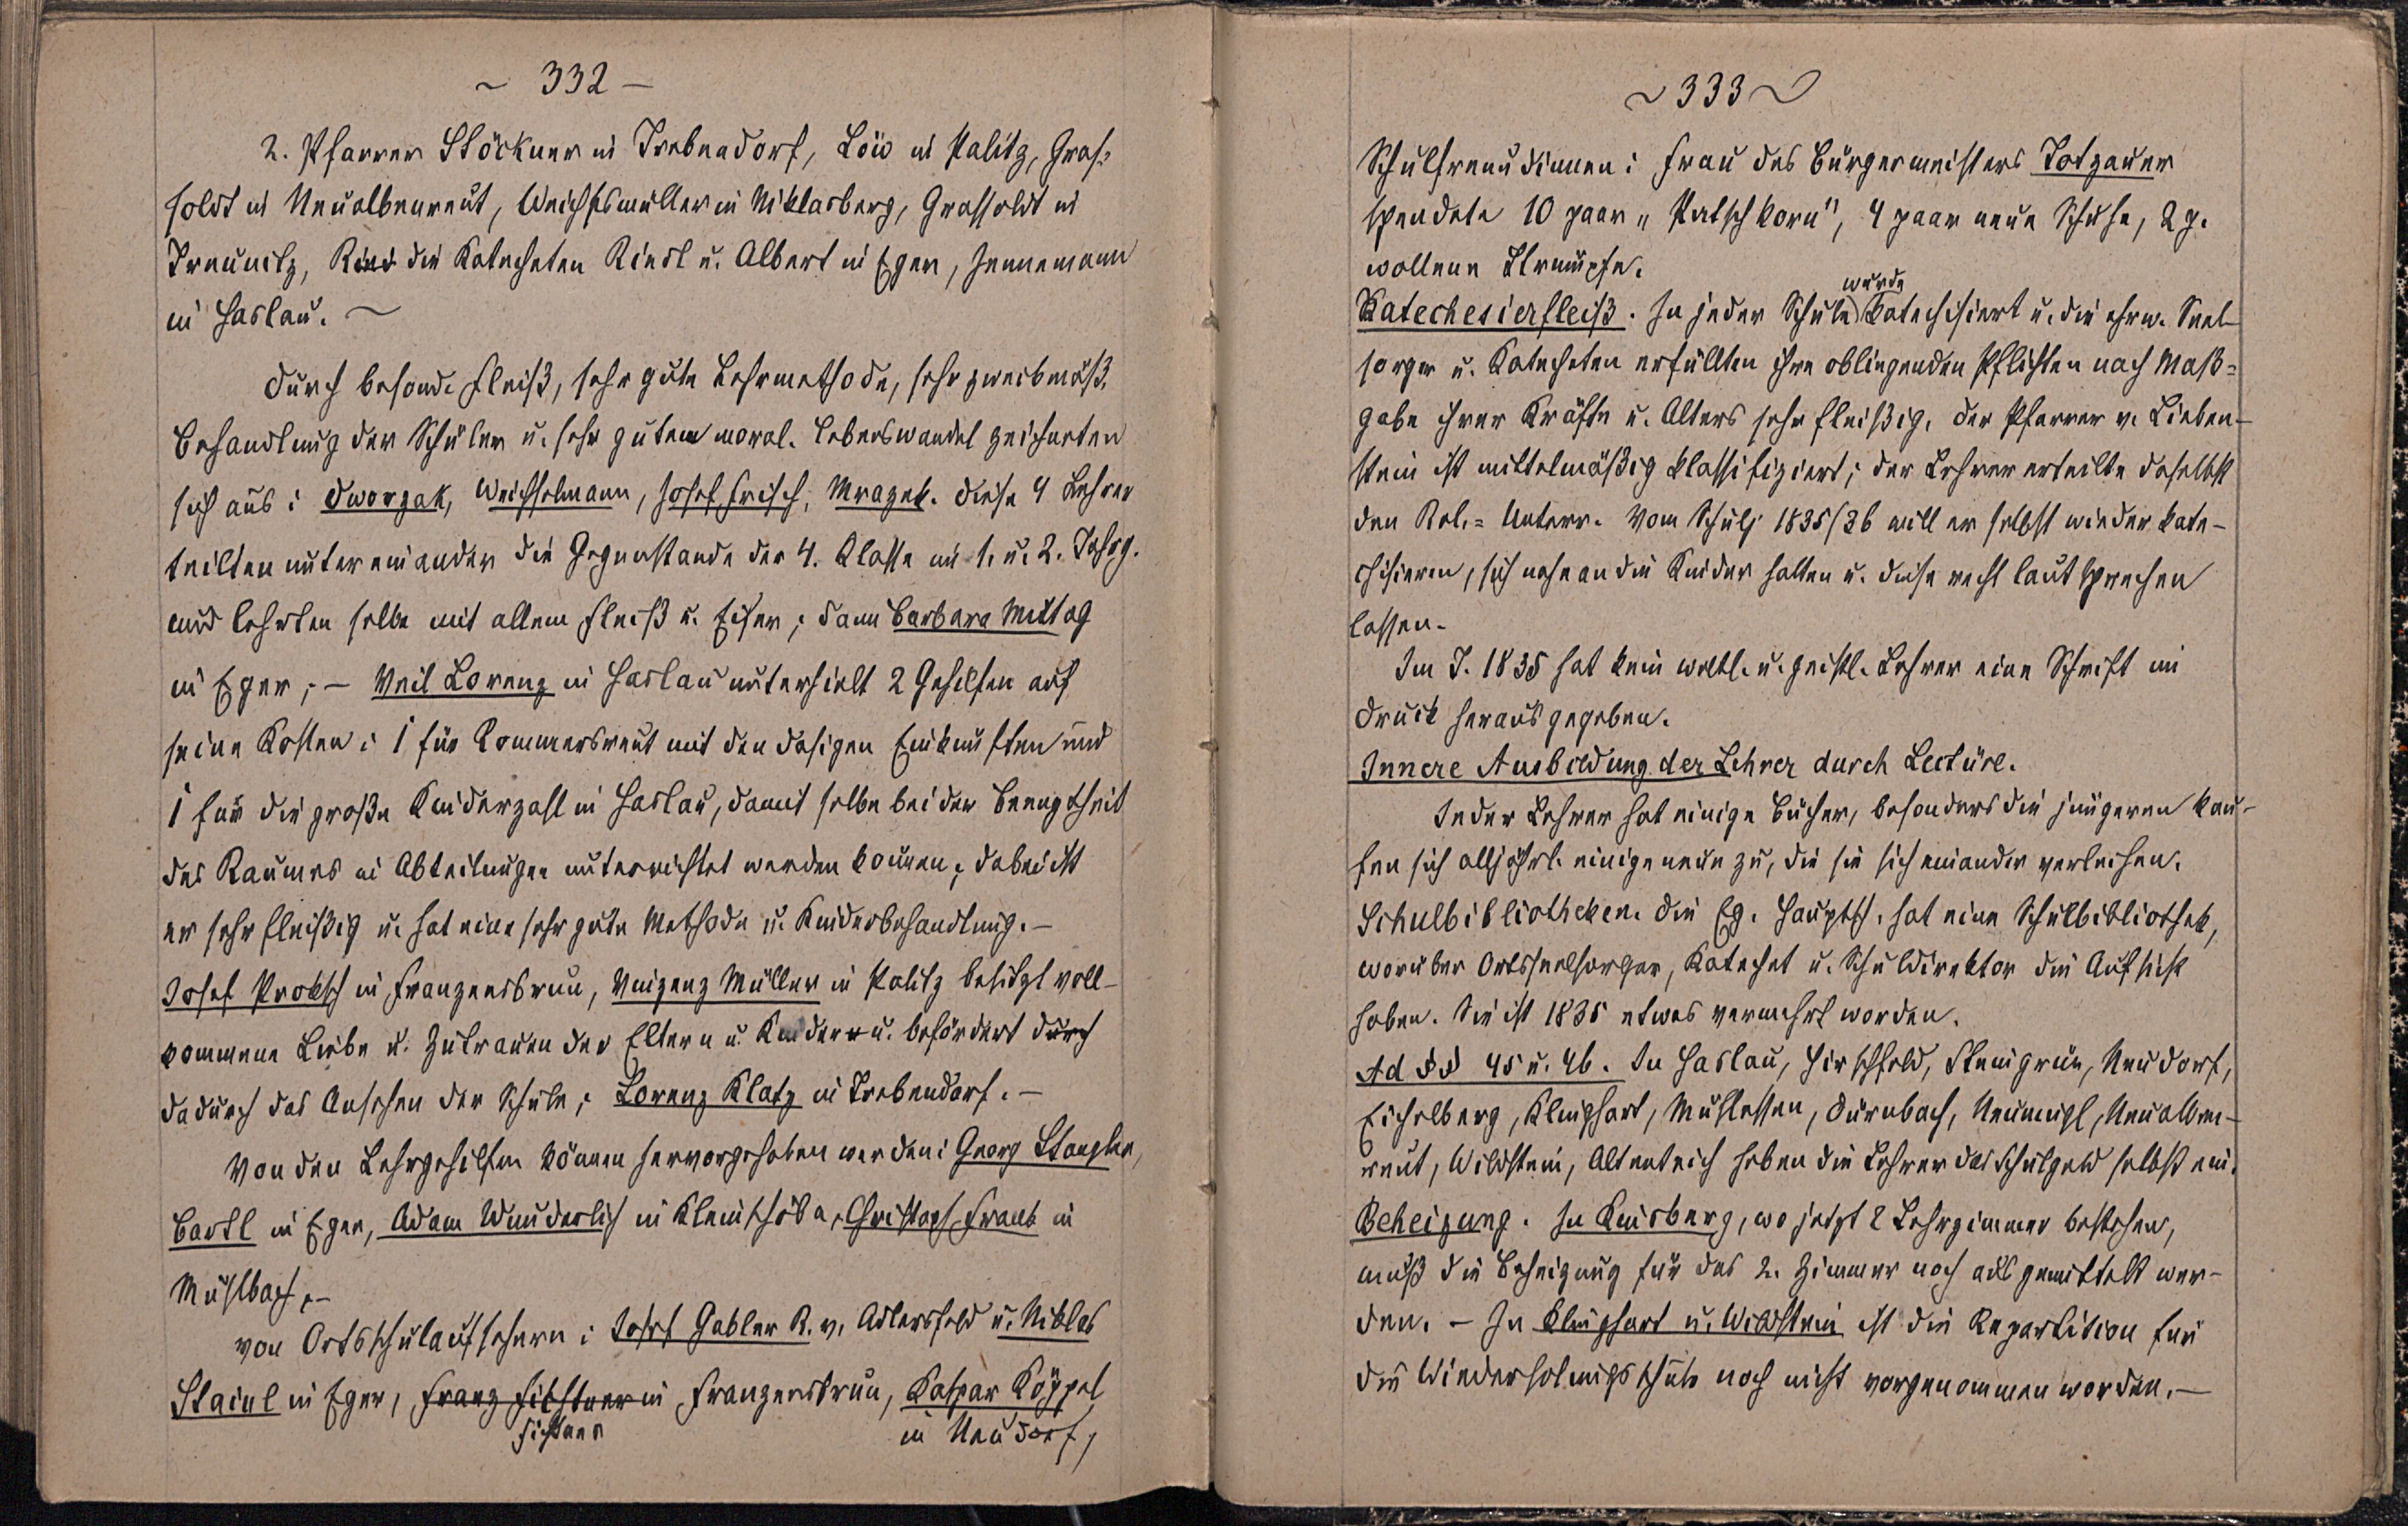 ~ 332 —
2. Pfarrer Stöckner in Trebendorf, Löw in Palitz, Gras-
soldt in Neualbenreut, Weichsmüller in Niklasberg, Grassoldt in
Treunitz, die Katecheten Riedl u. Albert in Eger, Hennemann
in Haslau. ~
Durch besond. Fleiß, sehr gute Lehrmethode, sehr zweckmäß.
Behandlung der Schüler u. sehr gutem moral. Lebenswandel zeichneten
sich aus: Dworzak, Weichselmann, Josef Frisch, Mrazek. Diese 4 Lehrer
teilten untereinander die Gegenstände der 4. Klasse im 1. u. 2. Jahrg.
und lehrten selbe mit allem Fleiß u. Eifer; dann Barbara Mittag
in Eger; — Veit Lorenz in Haslau unterhielt 2 Gehilfen auf
seine Kosten: 1 für Rommersreut mit den dasigen Einkünften und
1 für die große Kinderzahl in Haslau, damit selbe bei der Beengtheit
des Raumes in Abteilungen unterrichtet werden können; dabei ist
er sehr fleißig u. hat eine sehr gute Methode u. Kinderbehandlung. —
Josef Proksch in Franzensbrunn, Vinzenz Müller in Palitz besitzt voll-
kommene Liebe u. Zutrauen der Eltern u. Kinder u. befördert durch
dadurch das Ansehen der Schule; Lorenz Klatz in Trebendorf. —
Von den Lehrgehilfen können hervorgehoben werden: Georg Stangler,
Bartl in Eger, Adam Wunderlich in Kleinschüba, Christoph Frank in
Mühlbach, —
von Ortsschulaufsehern: Josef Gabler R. v. Adlersfeld u. Niklas
Stainl in Eger, Franz Fichtner in Franzensbrunn, Kaspar Köppel
Fichtner in Neudorf,
~ 333 ~
Schulfreundinnen: Frau des Bürgermeisters Totzauer
spendete 10 paar "Patschkorn", 4 paar neue Schuhe, 2 p.
wollene Strümpfe.
wurde
Katechesierfleiß. In jeder Schule katechisiert u. die ehrw. Seel-
sorger u. Katecheten erfüllten ihre obliegenden Pflichten nach Maß-
gabe ihrer Kräfte u. Alters sehr fleißig, der Pfarrer v. Lieben-
stein ist mittelmäßig klassifiziert; der Lehrer erteilte daselbst
den Rel.-Unterr. Vom Schulj. 1835/36 will er selbst wieder kate-
chisieren, sich nahe an die Kinder halten u. diese recht laut sprechen
lassen.
Im J. 1835 hat kein weltl. u. geistl. Lehrer eine Schrift im
Druck herausgegeben.
Innere Ausbildung der Lehrer durch Lectüre.
Jeder Lehrer hat einige Bücher, besonders die jüngeren kau-
fen sich alljährl. einige neue zu, die sie sich einander verleihen.
Schulbibliotheken. Die Eg. Hauptsch. hat eine Schulbibliothek,
worüber Ortsseelsorger, Katechet u. Schuldirektor die Aufsicht
haben. Sie ist 1835 etwas vermehrt worden.
Ad §§ 45 u. 46. In Haslau, Hirschfeld, Steingrün, Neudorf,
Eichelberg, Klinghart, Mühlessen, Dürnbach, Neumugl, Neualben-
reut, Wildstein, Altenteich heben die Lehrer das Schulgeld selbst ein.
Beheizung. In Kinsberg, wo jetzt 2 Lehrzimmer bestehen,
muß die Beheizung für das 2. Zimmer noch ausgemittelt wer-
den. — In Klinghart u. Wildstein ist die Repartition für
die Wiederholungsschule noch nicht vorgenommen worden. —